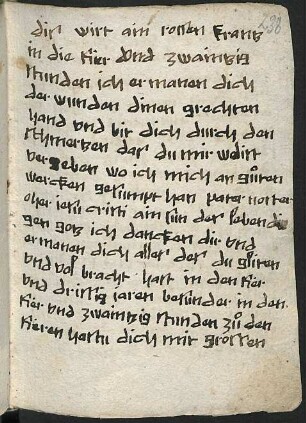 238
dir wirt ain rossen krantz
in die fier vnd zwaintzig
stunden ich ermanen dich
der wunden dinen grechten
hand vnd bit dich durch den
schmertzen das du mir wölist
vergeben wo ich mich an gůten
wercken gesumpt han pater noster
o her iesu cristi ain sun der lebendi
gen gotz ich dancken dir vnd
ermanen dich aller der du gůten
vnd vol bracht hast in den fier
vnd drissig jaren besunder in den
fier vnd zwaintzig stunden zů den
fieren hastu dich mit grossen